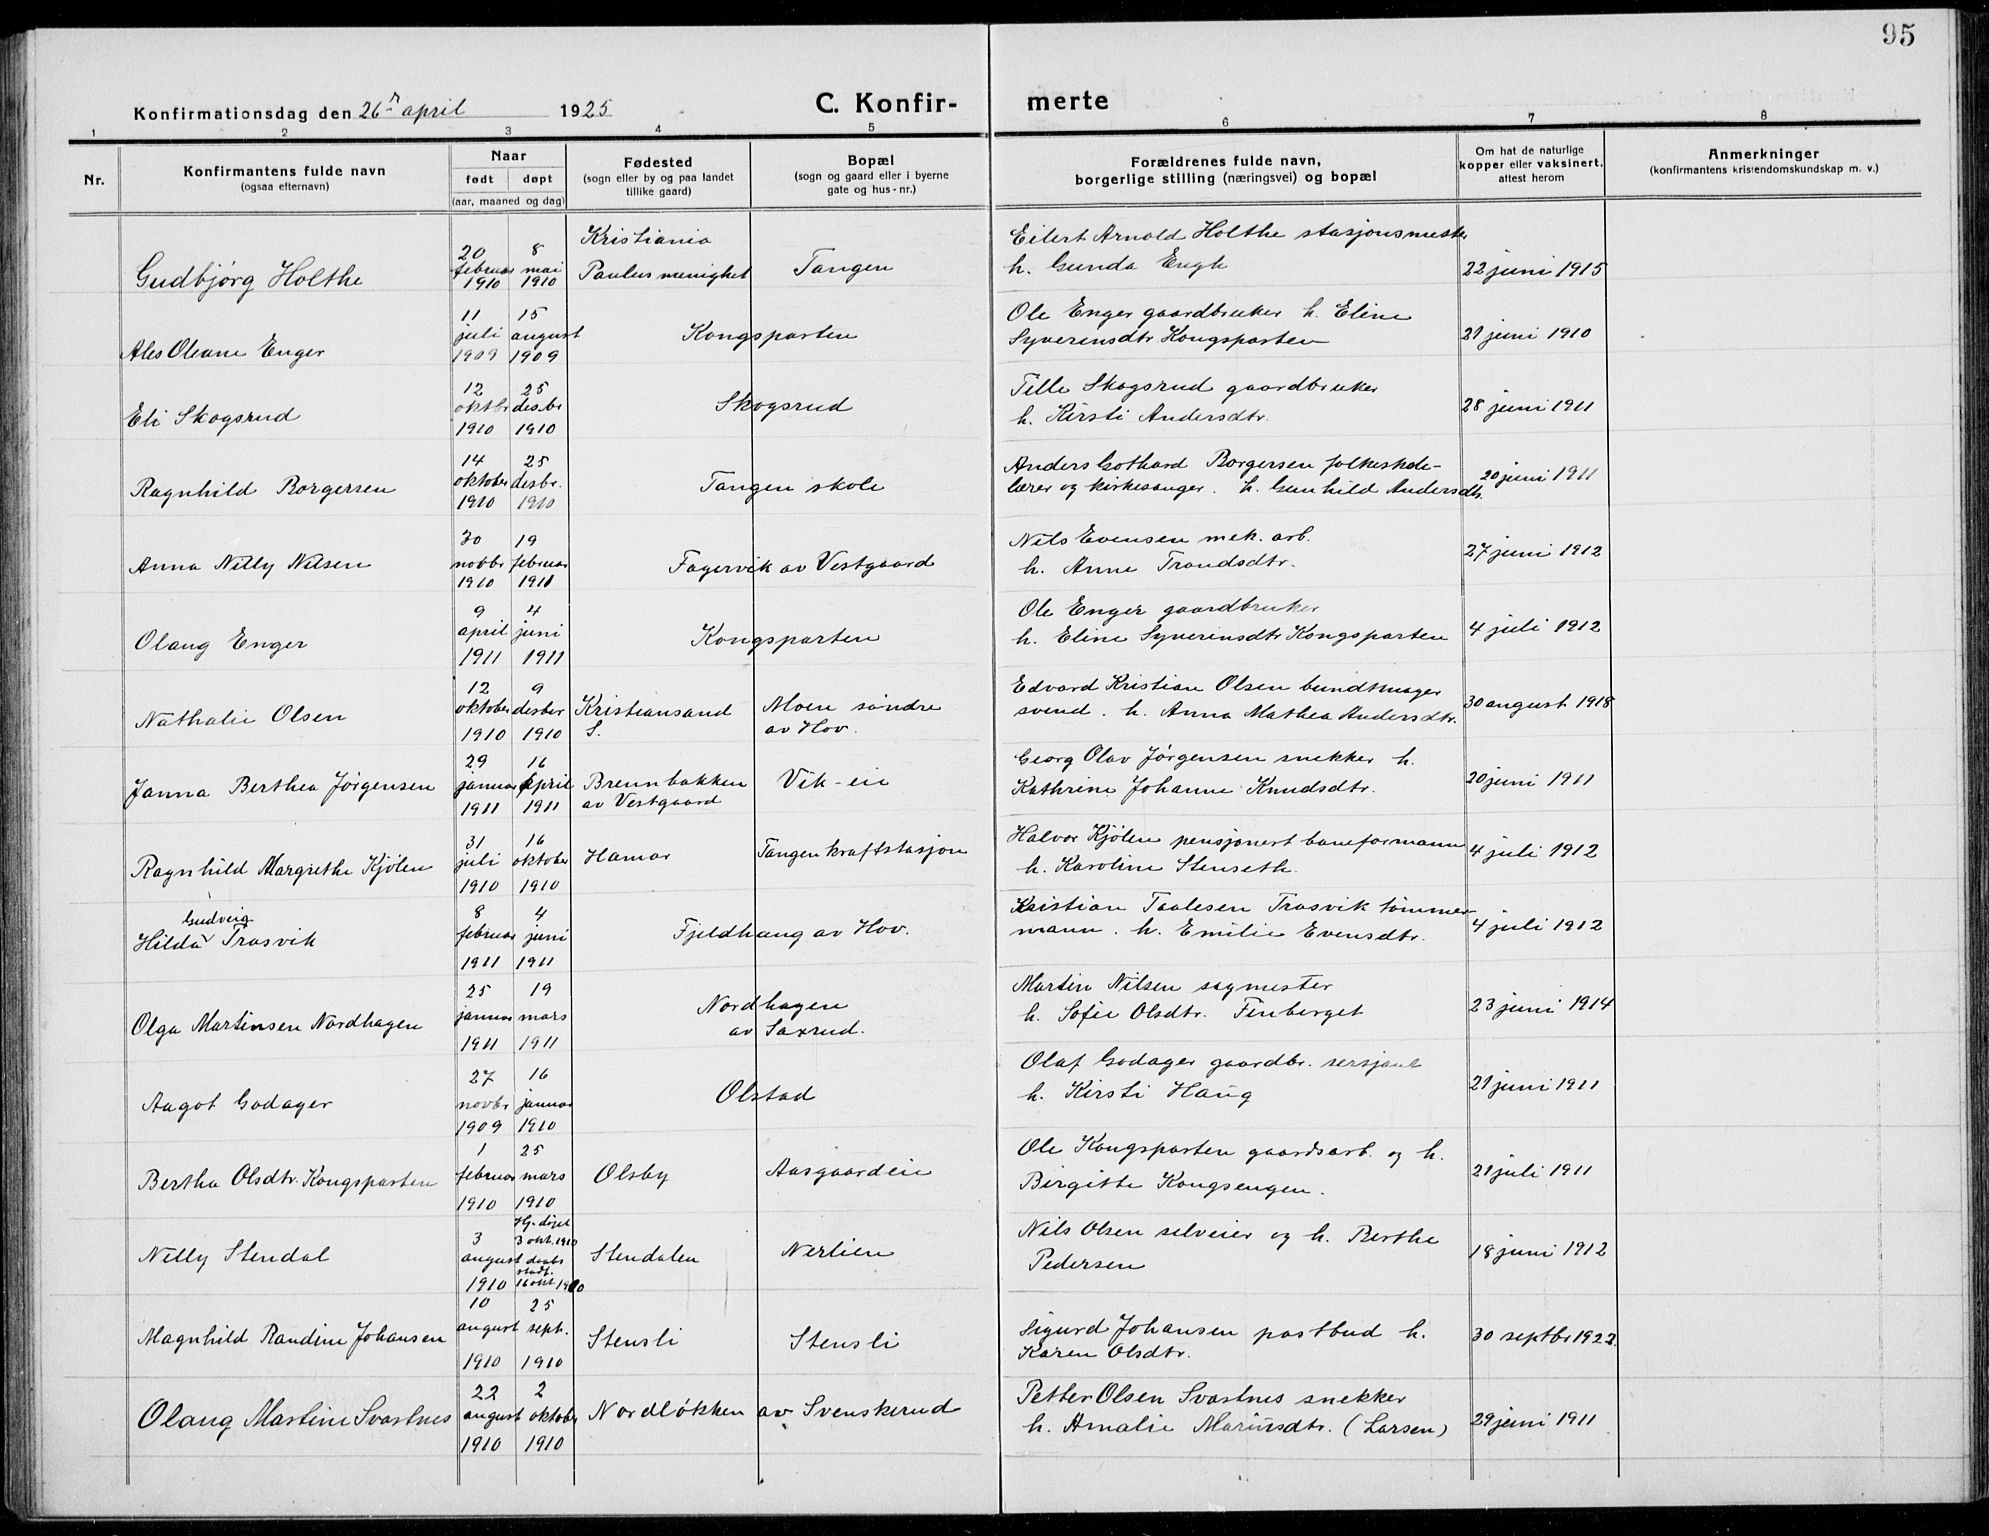 95
Konfirmationsdag den 26. april 1925 C. Konfir- merte
1 2 3 4 5 6 7 8
Nr. Konfirmantens fulde navn (ogsaa efternavn) Naar født døpt (aar, maaned og dag) Fødested (sogn eller by og paa landet tillike gaard) Bopæl (sogn og gaard eller i byerne gate og hus-nr.) Forældrenes fulde navn, borgerlige stilling (næringsvei) og bopæl Om hat de naturlige kopper eller vaksinert, attest herom Anmerkninger (konfirmantens kristendomskundskap m. v.)
Gudbjørg Holthe 20 februar 1910 8 mai 1910 Kristiania Paulus menighet Tangen Eilert Arnold Holthe stasjonsmester h. Gunda Engh 22 juni 1915
Ales Oleane Enger 11 juli 1909 15 august 1909 Kongsparten Ole Enger gaardbruker h. Eline Syverinsdtr Kongsparten 21 juni 1910
Eli Skogsrud 12 oktbr 1910 25 desbr 1910 Skogsrud Tille Skogsrud gaardbruker h. Kirsti Andersdtr. 28 juni 1911
Ragnhild Borgersen 14 oktober 1910 25 desbr. 1910 Tangen skole Anders Gothard Borgersen folkeskole- lærer og kirkesanger. h. Gunhild Andersdtr. 20 juni 1911
Anna Nilly Nilsen 30 novbr 1910 19 februar 1911 Fagervik av Vestgaard Nils Evensen mek. arb. h. Anne Trondsdtr. 27 juni 1912
Olaug Enger 9 april 1911 4 juni 1911 Kongsparten Ole Enger gaardbruker h. Eline Syverinsdtr Kongsparten 4 juli 1912
Nathalie Olsen 12 oktober 1910 9 desber 1910 Kristiansand S. Moen søndre av Hov. Edvard Kristian Olsen bundtmager svend. h. Anna Mathea Andersdtr. 30 august 1918
Janna Berthea Jørgensen 29 januar 1911 16 april 1911 Brennbakken av Vestgaard Vik-eie Georg Olav Jørgensen snekker h. Kathrine Johanne Knudsdtr. 20 juni 1911
Ragnhild Margrethe Kjølen 31 juli 1910 16 oktober 1910 Hamar Tangen kraftstasjon Halvor Kjølen pensjonert baneformann h. Karoline Stenseth. 4 juli 1912
Hilda Gudveig Trasvik 8 februar 1911 4 juni 1911 Fjeldhaug av Hov. Kristian Taalesen Trasvik tømmer mann. h. Emilie Evensdtr. 4 juli 1912
Olga Martinsen Nordhagen 25 januar 1911 19 mars 1911 Nordhagen av Saxrud. Martin Nilsen sagmester h. Sofie Olsdtr. Finberget 23 juni 1914
Aagot Godager 27 novbr 1909 16 januar 1910 Olstad Olaf Godager gaardbr. sersjant h. Kirsti Haug 21 juni 1911
Bertha Olsdtr. Kongsparten 1 februar 1910 25 mars 1910 Olsby Aasgaardeie Ole Kongsparten gaardsarb. og h. Birgitte Kongsengen. 21 juli 1911
Nilly Stendal 3 august 1910 Hj. døpt 3 okt. 1910 daabs stadf. 16 okt 1910 Stendalen Nerlien Nils Olsen selveier og h. Berthe Pedersen 18 juni 1912
Magnhild Randine Johansen 10 august 1910 25 sept. 1910 Stensli Stensli Sigurd Johansen postbud h. Karen Olsdtr. 30 septbr 1922
Olaug Martine Svartnes 22 august 1910 2 oktober 1910 Nordløkken av Svenskerud Petter Olsen Svartnes snekker h. Amalie Mariusdtr. (Larsen) 29 juni 1911